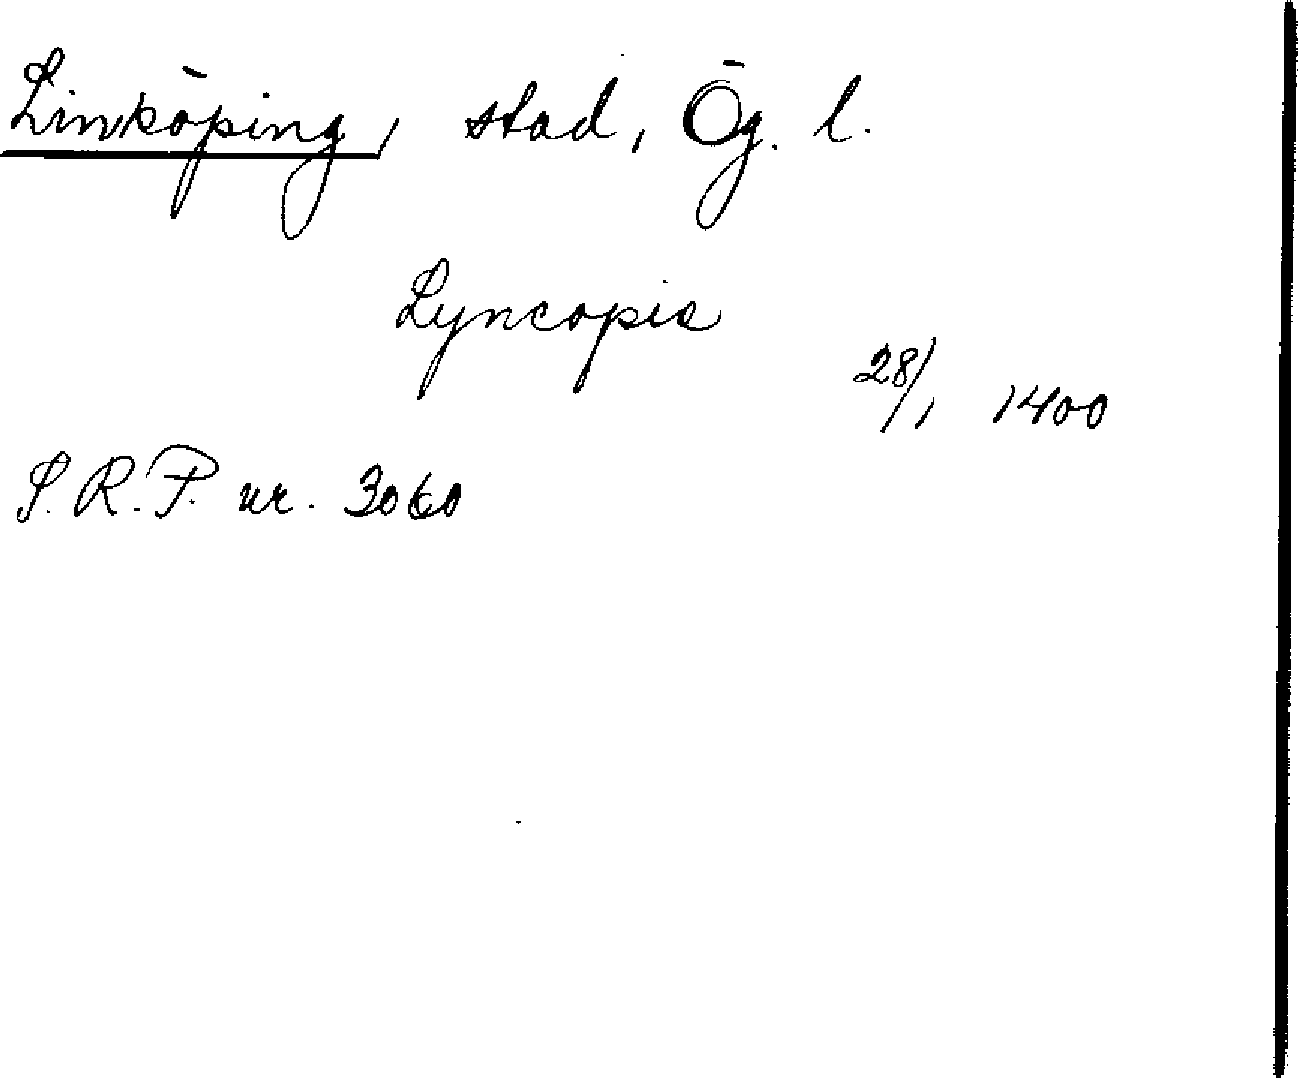 Linköping, stad, Ög. l.
Lyncopis
28/1 1400
S.R.P. nr. 3060